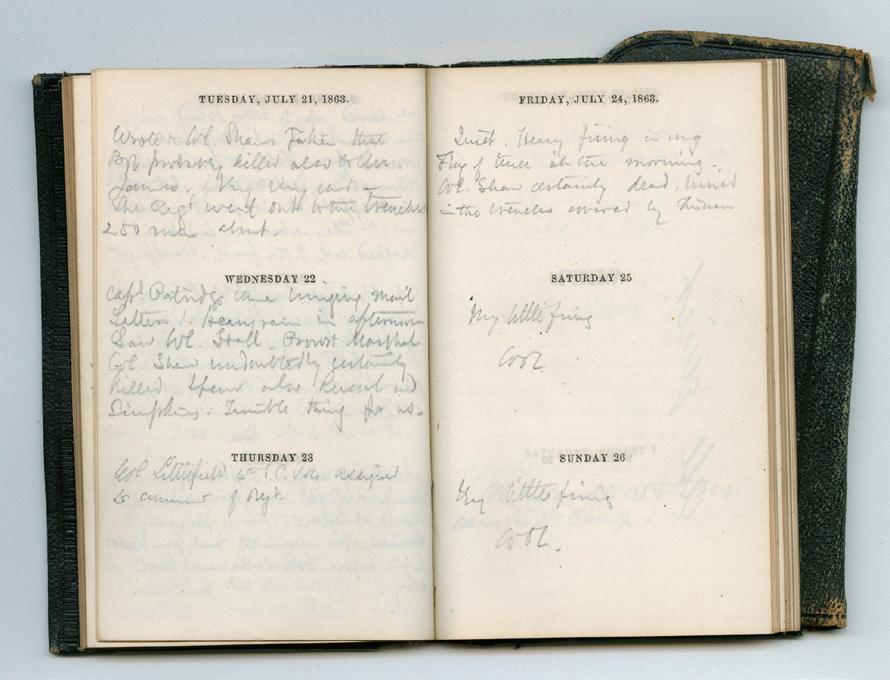 TUESDAY, JULY 21, 1863.
Wrote Col. Shaws Father that
Bro probably killed also
James. Very very sad
The Regt went out to the trenches
250 men about.
WEDNESDAY 22
Capt. Patridge came bringing mail
Letters! Heavy rain in afternoon
Saw Col. Hall, Provost Marshal
Col Shaw undoubtedly certainly
killed also Russel and
Simpkins. Terrible thing for us.
THURSDAY 23
Col Littlefield 4th S.C. Vols assigned
to of Regt.
FRIDAY, JULY 24, 1863.
Quiet. Heavy firing in
Flag of truce in the morning.
Col. Shaw certainly dead, buried
in the trenches covered by
SATURDAY 25
little firing
Cool
SUNDAY 26
little firing
Cool.